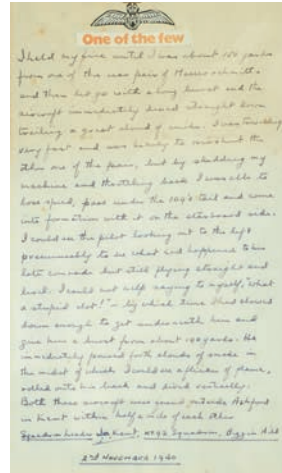 One of the few
I held my fire until I was about 150 yards
from one of the rear pair of Messerschmitts
and then let go with a long burst and the
aircraft immediately dived straight down
trailing a great cloud of smoke. I was travelling
very fast and was likely to overshoot the
other one of the pair, but by skidding my
machine and throttling back I was able to
lose speed, pass under the 109's tail and come
into formation with it on the starboard side.
I could see the pilot looking out to the left
presumably to see what had happened to his
late comrade but still flying straight and
level. I could not help saying to myself, "What
a stupid clot!" by which time I had slowed
down enough to get underneath him and
give him a burst from about 100 yards. He
immediately poured forth clouds of smoke in
the midst of which I could see a flicker of flame,
rolled onto his back and dived vertically.
Both these aircraft were found outside Ashford
in Kent within half a mile of each other
Squadron Leader Kent, No 92 Squadron, Biggin Hill
2nd November 1940